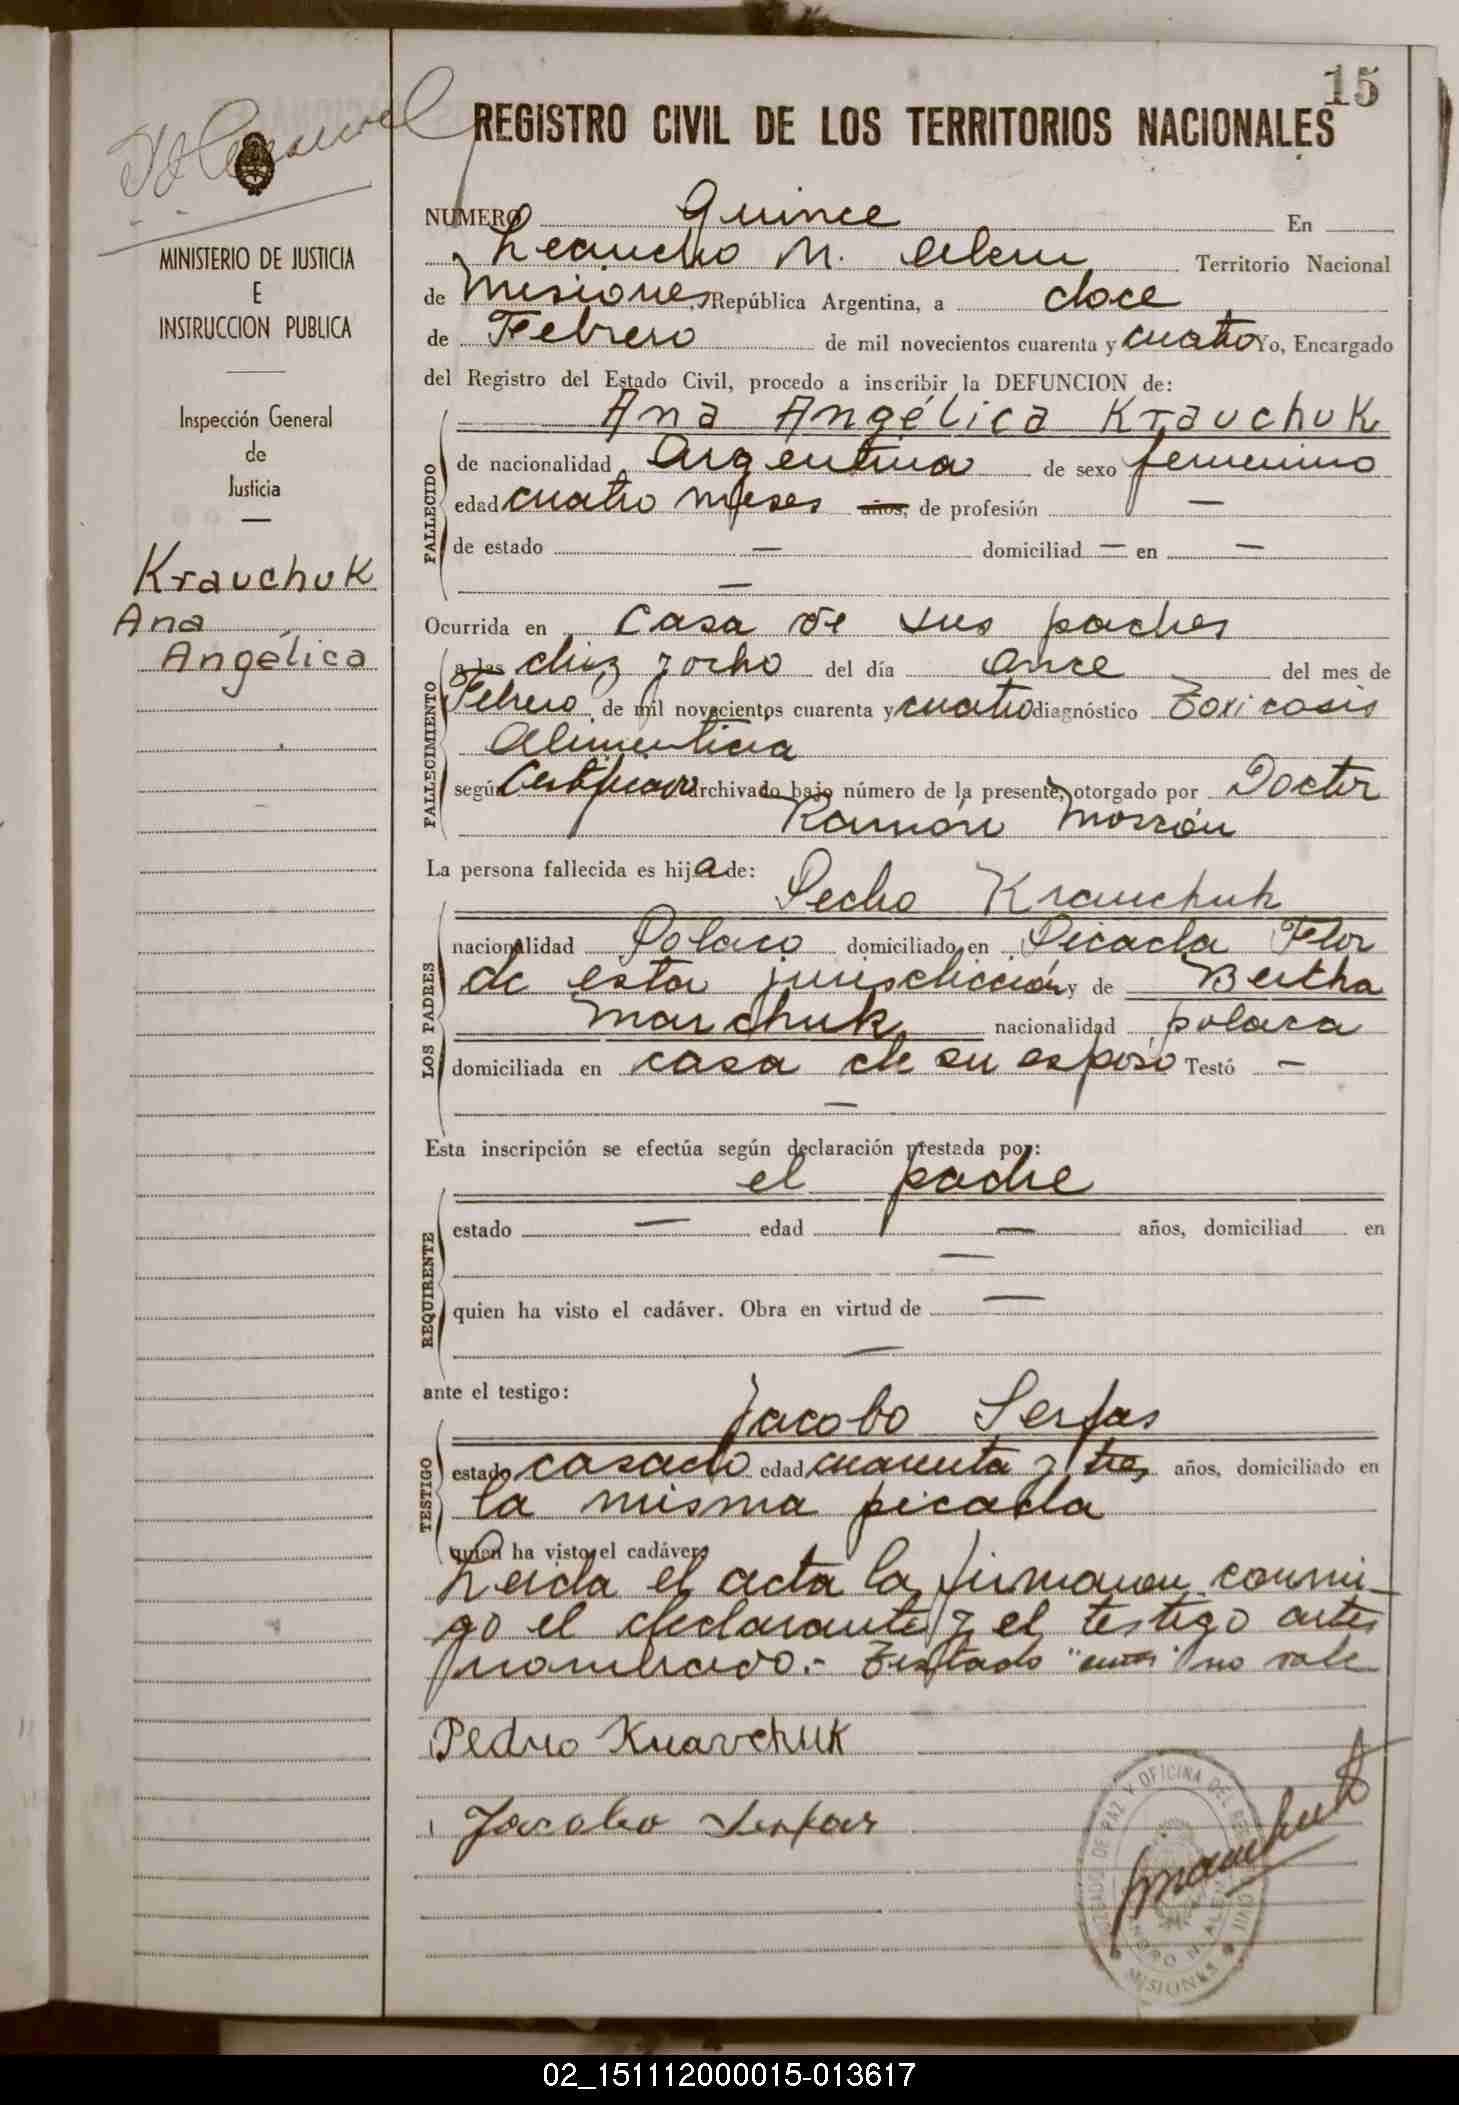 15
REGISTRO CIVIL DE LOS TERRITORIOS NACIONALES
MINISTERIO DE JUSTICIA
E
INSTRUCCION PUBLICA
Inspección General
de
Justicia
Krauchuk
Ana
Angélica
NUMERO Quince En
Leandro N. Alem Territorio Nacional
de Misiones, República Argentina, a doce
de Febrero de mil novecientos cuarenta y cuatro Yo, Encargado
del Registro del Estado Civil, procedo a inscribir la DEFUNCION de:
Ana Angélica Krauchuk
FALLECIDO
de nacionalidad Argentina de sexo femenino
edad cuatro meses años, de profesión —
de estado — domiciliad — en —
—
Ocurrida en Casa de sus padres
FALLECIMIENTO
a las diez y ocho del día once del mes de
Febrero, de mil novecientos cuarenta y cuatro diagnóstico Toxicosis
Alimenticia
según Certificado archivado bajo número de la presente, otorgado por Doctor
Ramón Morrón
La persona fallecida es hija de:
LOS PADRES
Pedro Krauchuk
nacionalidad Polaco domiciliado en Picada Flor
de esta jurisdicción y de Bertha
Marchuk nacionalidad polaca
domiciliada en casa de su esposo Testó —
—
Esta inscripción se efectúa según declaración prestada por:
el padre
REQUIRENTE
estado — edad — años, domiciliad en
—
quien ha visto el cadáver. Obra en virtud de —
—
ante el testigo:
Jacobo Serfas
TESTIGO
estado casado edad cuarenta y tres años, domiciliado en
la misma picada
quien ha visto el cadáver.
Leida el acta la firmaron conmi-
go el declarante y el testigo antes
nombrado.- Testado "años" no vale
Pedro Kravchuk
Jacobo Serfas
JUZGADO DE PAZ Y OFICINA DEL REG. CIVIL
LEANDRO N. ALEM
MISIONES
02_151112000015-013617